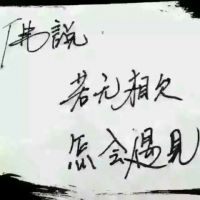 「佛說
若无相欠
怎会遇見